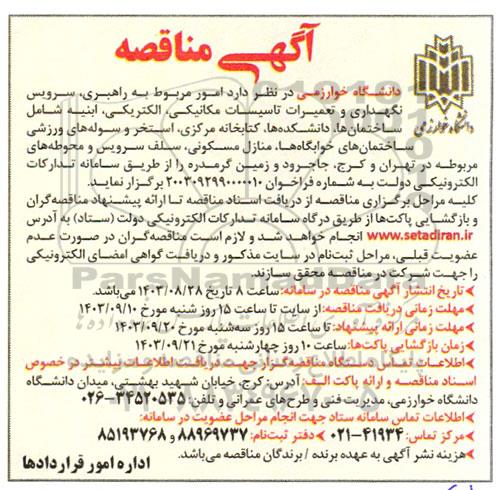 آگهی مناقصه
دانشگاه خوارزمی
دانشگاه خوارزمی در نظر دارد امور مربوط به راهبری، سرویس
نگهداری و تعمیرات تاسیسات مکانیکی، الکتریکی، ابنیه شامل
ساختمان‌ها، دانشکده‌ها، کتابخانه مرکزی، استخر و سوله‌های ورزشی
ساختمان‌های خوابگاه‌ها، منازل مسکونی، سلف سرویس و محوطه‌های
مربوطه در تهران و کرج، جاجرود و زمین گرمدره را از طریق سامانه تدارکات
الکترونیکی دولت به شماره فراخوان ۲۰۰۳۰۹۲۹۹۰۰۰۰۱۰ برگزار نماید.
کلیه مراحل برگزاری مناقصه از دریافت اسناد مناقصه تا ارائه پیشنهاد مناقصه‌گران
و بازگشایی پاکت‌ها از طریق درگاه سامانه تدارکات الکترونیکی دولت (ستاد) به آدرس
www.setadiran.ir انجام خواهد شد و لازم است مناقصه‌گران در صورت عدم
عضویت قبلی، مراحل ثبت‌نام در سایت مذکور و دریافت گواهی امضای الکترونیکی
را جهت شرکت در مناقصه محقق سازند.
تاریخ انتشار آگهی مناقصه در سامانه: ساعت ۸ تاریخ ۱۴۰۳/۰۸/۲۸ می‌باشد.
مهلت زمانی دریافت مناقصه: از سایت تا ساعت ۱۵ روز شنبه مورخ ۱۴۰۳/۰۹/۱۰
مهلت زمانی ارائه پیشنهاد: تا ساعت ۱۵ روز سه‌شنبه مورخ ۱۴۰۳/۰۹/۲۰
زمان بازگشایی پاکت‌ها: ساعت ۱۰ روز چهارشنبه مورخ ۱۴۰۳/۰۹/۲۱
اطلاعات تماس دستگاه مناقصه‌گزار جهت دریافت اطلاعات بیشتر در خصوص
اسناد مناقصه و ارائه پاکت الف: آدرس: کرج، خیابان شهید بهشتی، میدان دانشگاه
دانشگاه خوارزمی، مدیریت فنی و طرح‌های عمرانی و تلفن: ۳۴۵۲۰۵۳۵-۰۲۶
اطلاعات تماس سامانه ستاد جهت انجام مراحل عضویت در سامانه:
مرکز تماس: ۴۱۹۳۴-۰۲۱ دفتر ثبت‌نام: ۸۸۹۶۹۷۳۷ و ۸۵۱۹۳۷۶۸
هزینه نشر آگهی به عهده برنده / برندگان مناقصه می‌باشد.
اداره امور قراردادها
ParsNamadData